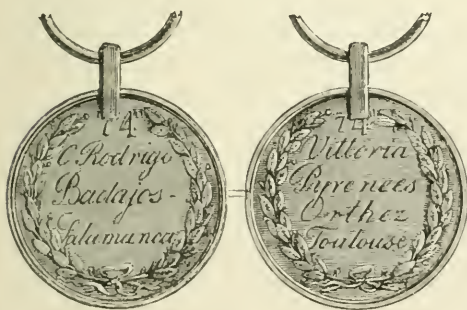 74
C. Rodrigo
Badajos-
Salamanca
74
Vittoria
Pyrenees
Orthez
Toulouse